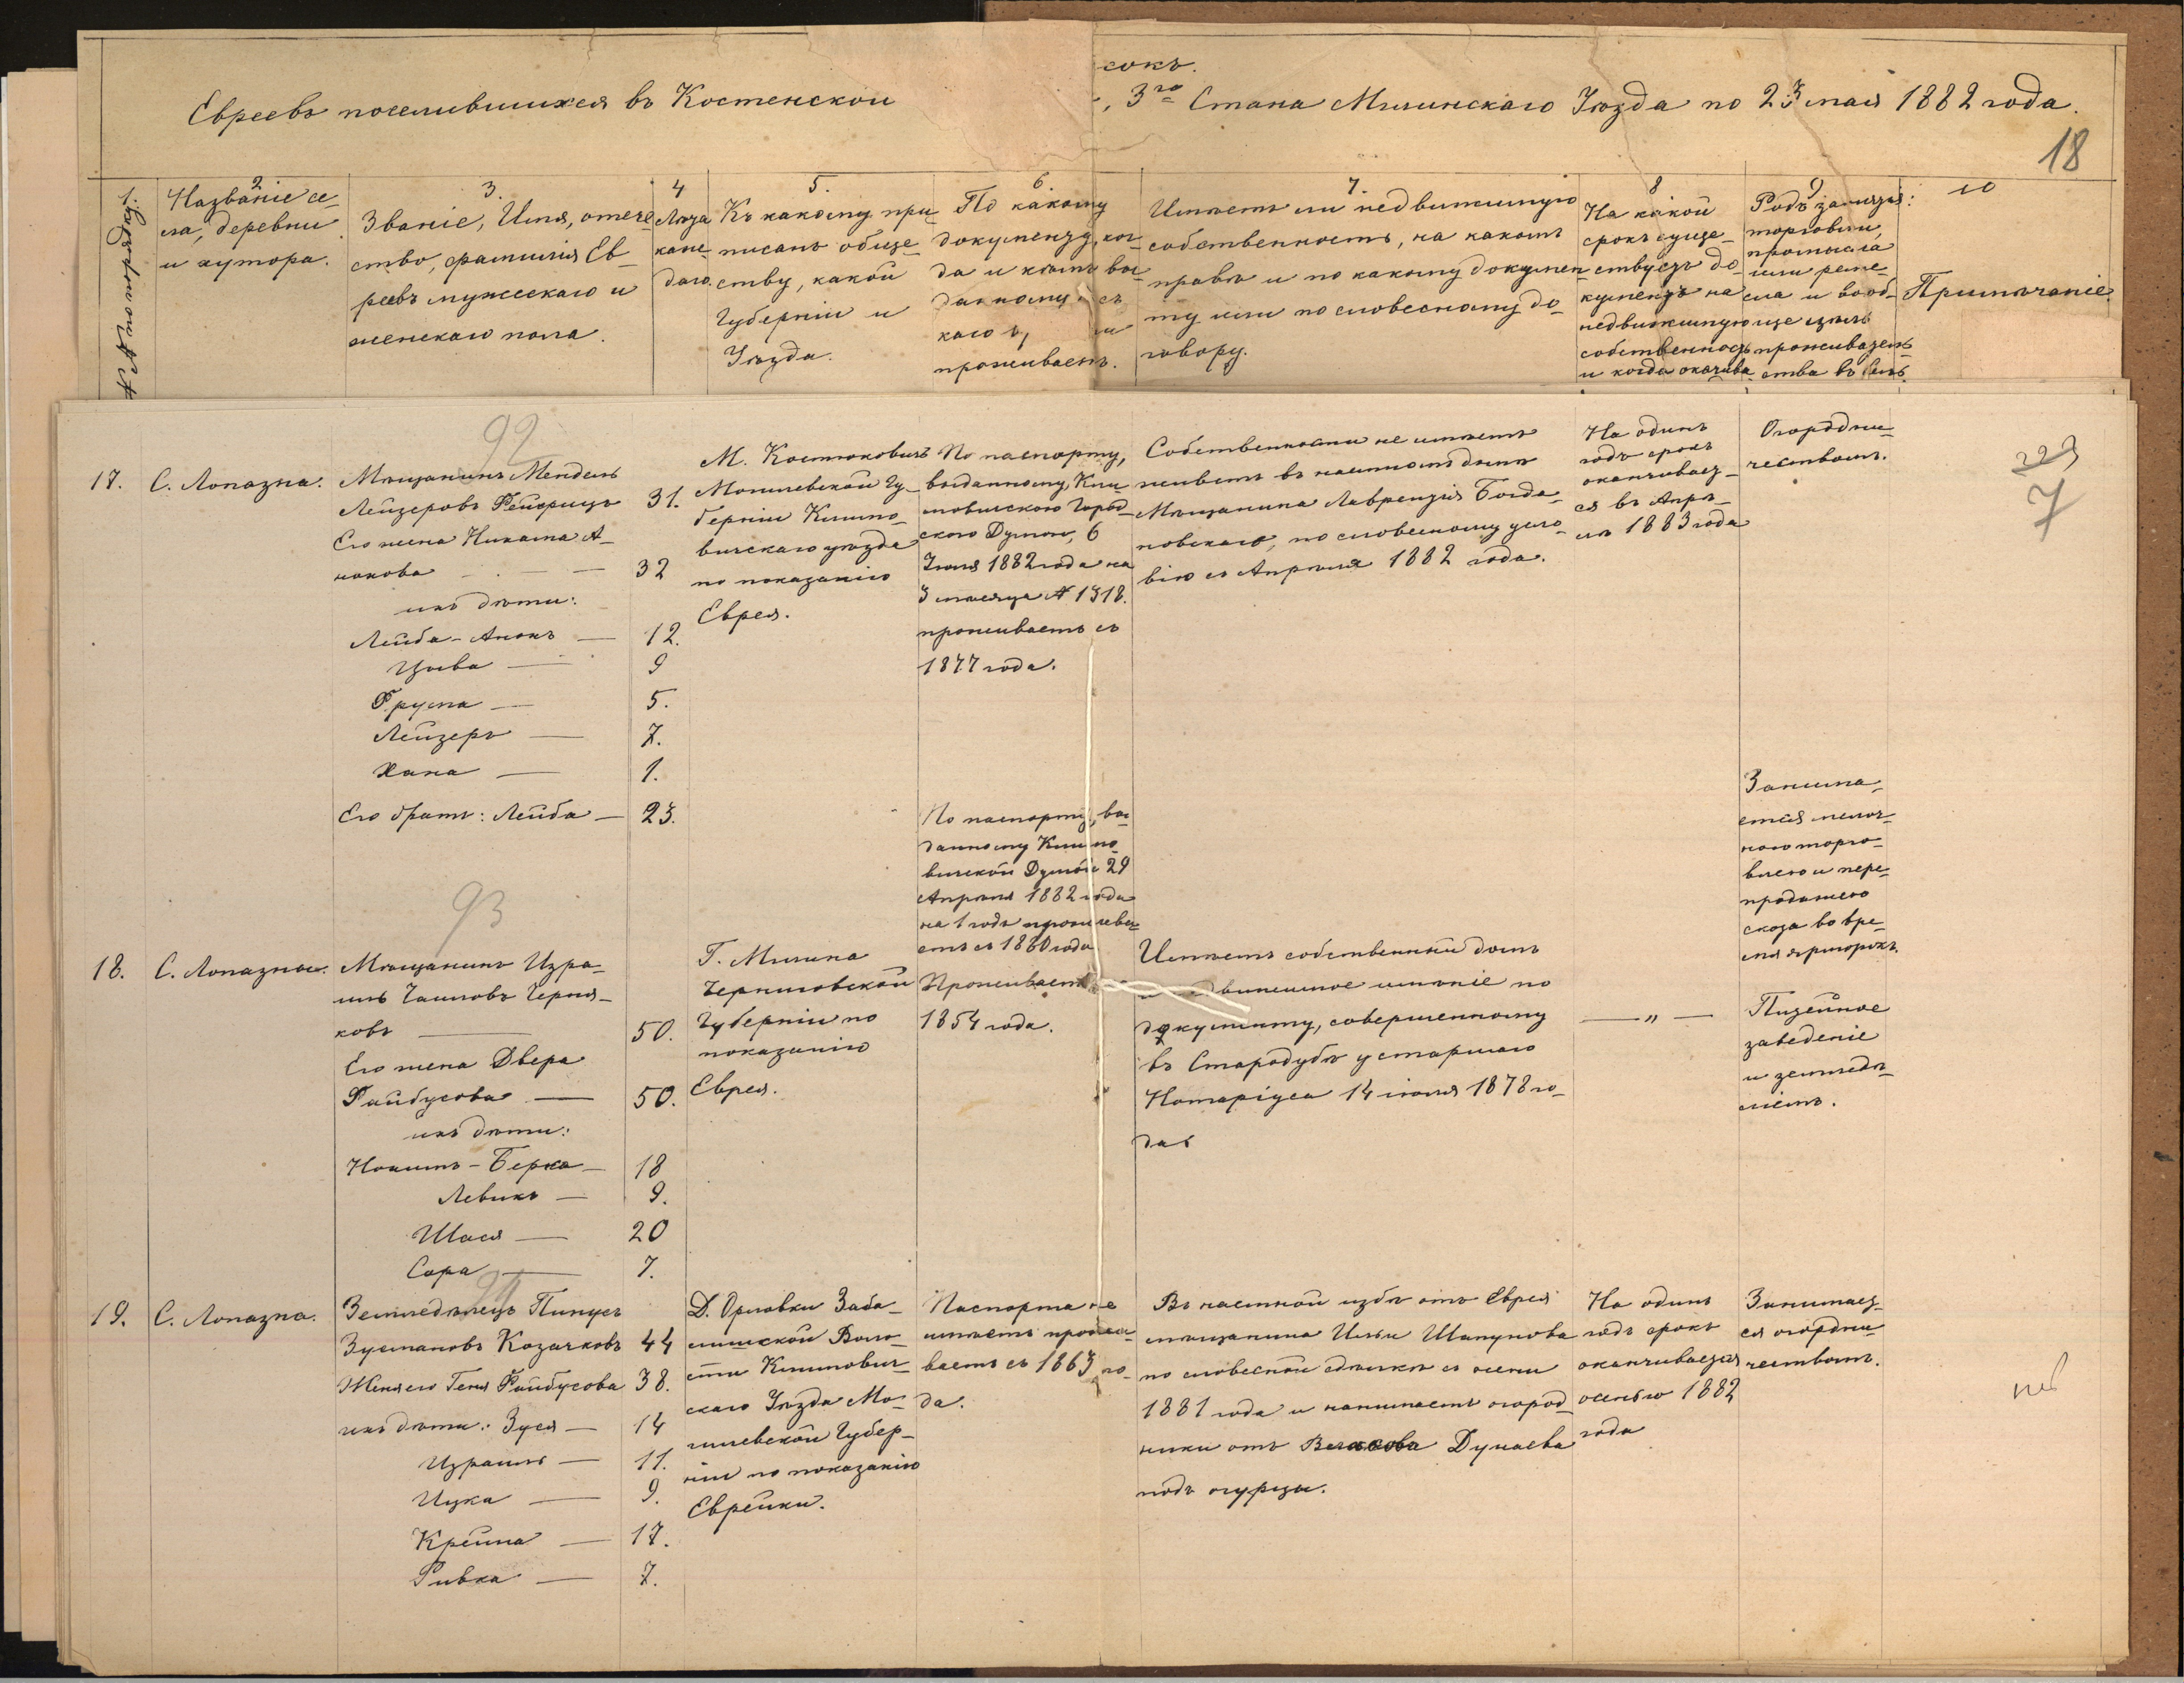 сокъ.
Евреевъ поселившихся въ Костенской
3го Стана Мглинскаго Уѣзда по 23 мая 1882 года.
18
1.
№ по порядку.
2
Названіе се-
ла, деревни
и хутора.
3.
Званіе, Имя, отече-
ство, фамилія Ев-
реевъ мужескаго и
женскаго пола.
4
Лѣта
каж-
даго.
5.
Къ какому при-
писанъ обще-
ству, какой
Губерніи и
Уѣзда.
6.
По какому
документу, ког-
да и кѣмъ вы-
данному съ
каго
проживаетъ.
7.
Имѣетъ ли недвижимую
собственность, на какомъ
правѣ и по какому докумен-
ту или по словесному до-
говору.
8
На какой
срокъ суще-
ствуетъ до-
кументъ на
недвижимую
собственность
и когда оканчива
9
Родъ занятія:
торговли,
промысла
или реме-
сла и вооб-
ще цѣль
проживатель-
ства въ селѣ.
10
Примѣчаніе.
92
17.
С. Лопазна.
Мѣщанинъ Мендель
Лейзеровъ Рейфицъ
31.
Его жена Нихама А-
нокова
32
ихъ дѣти:
Лейба-Анокъ — 12.
Цива — 9
Фрума — 5.
Лейзеръ — 7.
Хана — 1.
Его братъ: Лейба — 23.
М. Костюковичъ
Могилевской Гу-
берніи Климо-
вичскаго уѣзда
по показанію
Еврея.
По паспорту,
выданному Кли-
мовичскою Город-
скою Думою, 6
Іюля 1882 года на
3 мѣсяца № 1318.
проживаетъ съ
1877 года.
По паспорту, вы-
данному Климо-
вичской Думой 29
Апрѣля 1882 года
на 1 годъ прожива-
етъ съ 1880 года
Собственности не имѣетъ
живетъ въ наемномъ домѣ
Мѣщанина Лаврентія Богда-
новскаго, по словесному усло-
вію съ Апрѣля 1882 года.
На одинъ
годъ срокъ
оканчивает-
ся въ Апрѣ-
лѣ 1883 года
Огородни-
чествомъ.
Занима-
ется мелоч-
ною торго-
влею и пере-
продажею
скота во вре-
мя ярморокъ.
229
7
93
18.
С. Лопазна.
Мѣщанинъ Изра-
иль Хаимовъ Черня-
ковъ — 50.
Его жена Двера
Файбусова — 50.
ихъ дѣти:
Нохимъ-Берка — 18
Левикъ — 9.
Шася — 20
Сора — 7.
Г. Мглина
Черниговской
Губерніи по
показанію
Еврея.
Проживаетъ
1854 года.
Имѣетъ собственный домъ
и недвижимое имѣніе по
документу, совершенному
въ Стародубѣ у старшаго
Нотаріуса 14 іюля 1878 го-
да
— „ —
Питейное
заведеніе
и земледѣ-
ліемъ.
94
19.
С. Лопазна.
Земледѣлецъ Пинусъ
Зусмановъ Козачковъ 44
Жена его Геня Файбусова 38.
ихъ дѣти: Зуся — 14
Израиль — 11.
Ицка — 9.
Крейна — 17.
Ривка — 7.
Д. Орловки Заба-
лишской Воло-
сти Климович-
скаго Уѣзда Мо-
гилевской Губер-
ніи по показанію
Еврейки.
Паспорта не
имѣетъ прожи-
ваетъ съ 1863 го-
да.
Въ наемной избѣ отъ Еврея
мѣщанина Ильи Шапунова
по словесной сдѣлкѣ съ осени
1881 года и нанимаетъ огород-
ники отъ Дунаева
подъ огурцы.
На одинъ
годъ срокъ
оканчивается
осенью 1882
года
Занимает-
ся огородни-
чествомъ.